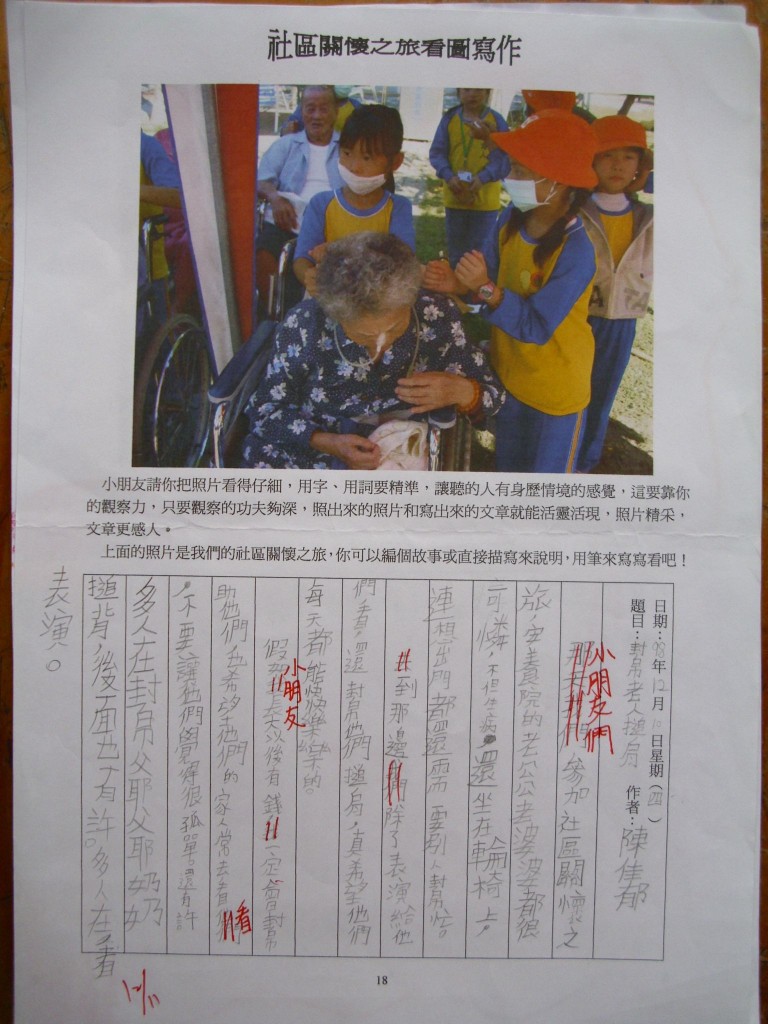 社區關懷之旅看圖寫作
小朋友請你把照片看得仔細，用字、用詞要精準，讓聽的人有身歷情境的感覺，這要靠你
的觀察力，只要觀察的功夫夠深，照出來的照片和寫出來的文章就能活靈活現，照片精采，
文章更感人。
上面的照片是我們的社區關懷之旅，你可以編個故事或直接描寫來說明，用筆來寫寫看吧！
日期：98年12月10日星期（四）
題目：幫老人搥肩 作者：陳佳郁
小朋友們參加社區關懷之
旅，安養院的老公公老婆婆都很
可憐，不但生病，還坐在輪椅上，
連想出門都還需要別人幫忙。
到那邊們除了表演給他
們看，還幫他們搥肩，真希望他們
每天都能快快樂樂的。
小朋友
假如長大以後有錢一定會幫
助他們也希望他們的家人常去看
，不要讓他們覺得很孤單，還有許
多人在幫爺爺奶奶
搥背，後面也有許多人在看
表演。
12/11
18